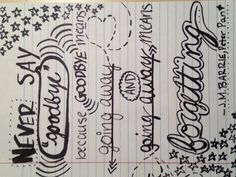 NEVER SAY
"goodbye"
because GOODBYE means
going away
AND
going away means
forgetting
J.M. BARRIE, Peter Pan